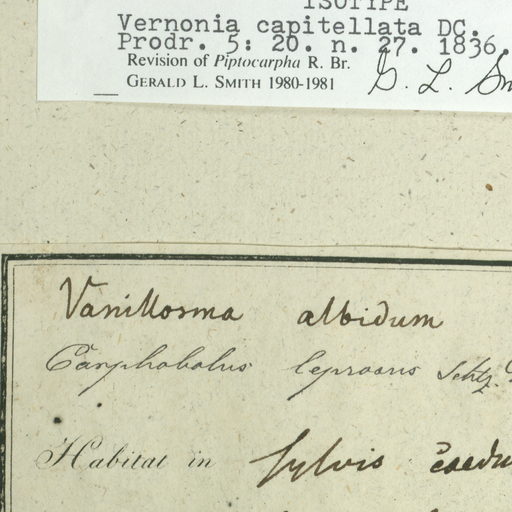 ISOTYPE
Vernonia capitellata DC.
Prodr. 5: 20. n. 27. 1836.
Revision of Piptocarpha R. Br.
GERALD L. SMITH 1980-1981 G. L. Sm
Vanillosma albidum
Carphobolus leprosus Schtz.
Habitat in sylvis caedu